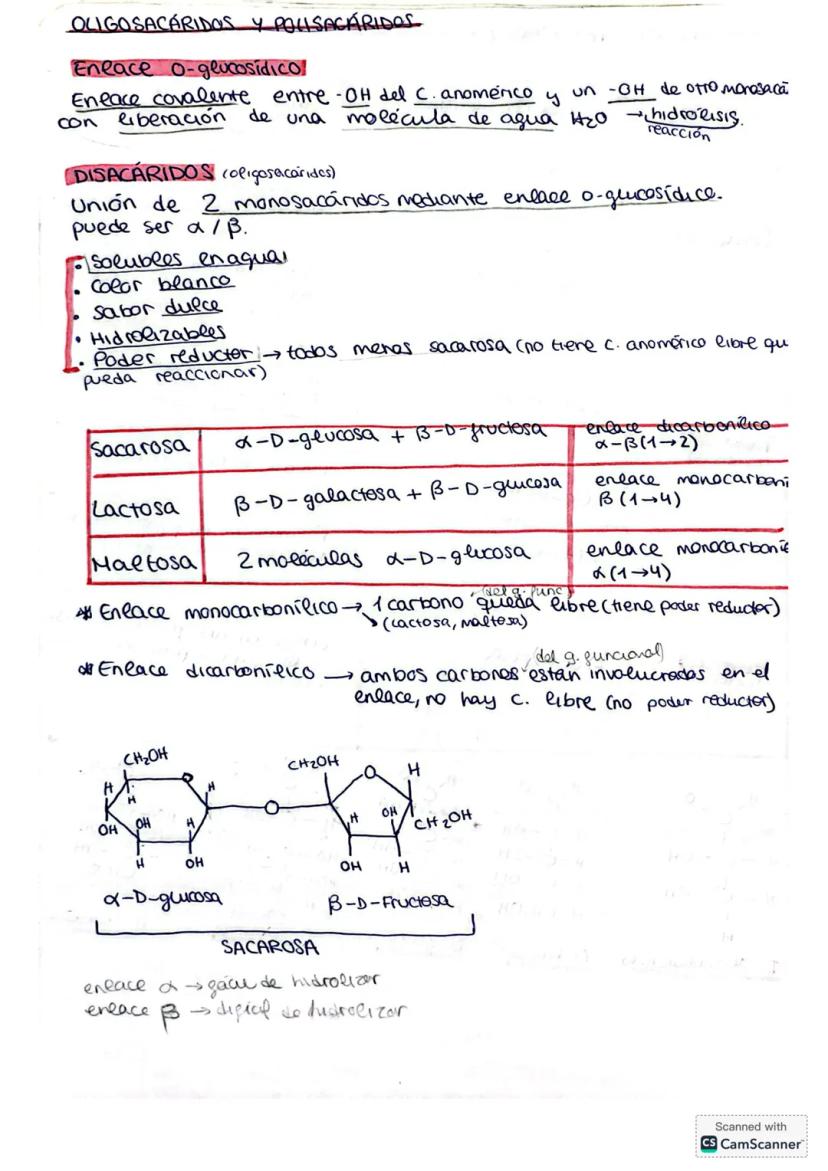 OLIGOSACÁRIDOS Y POLISACÁRIDOS
Enlace O-glucosídico
Enlace covalente entre -OH del C. anomérico y un -OH de otro monosacá
con liberación de una molécula de agua H2O → hidrólisis.
reacción
DISACÁRIDOS (oligosacáridos)
Unión de 2 monosacáridos mediante enlace o-glucosídico.
puede ser α / β.
• Solubles en agua
• Color blanco
• Sabor dulce
• Hidrolizables
• Poder reductor → todos menos sacarosa (no tiene c. anomérico libre qu
pueda reaccionar)
Sacarosa α-D-glucosa + β-D-fructosa enlace dicarbonílico
α-β(1→2)
Lactosa β-D-galactosa + β-D-glucosa enlace monocarboni
β(1→4)
Maltosa 2 moléculas α-D-glucosa enlace monocarboníl
α(1→4)
(del g. func)
* Enlace monocarbonílico → 1 carbono queda libre (tiene poder reductor)
↘ (lactosa, maltosa)
(del g. funcional)
* Enlace dicarbonílico → ambos carbonos están involucrados en el
enlace, no hay c. libre (no poder reductor)
CH2OH CH2OH
O O H
H H H
H OH H O H OH CH2OH
OH
H OH OH H
α-D-glucosa β-D-Fructosa
SACAROSA
enlace α → fácil de hidrolizar
enlace β → difícil de hidrolizar
Scanned with
CS CamScanner